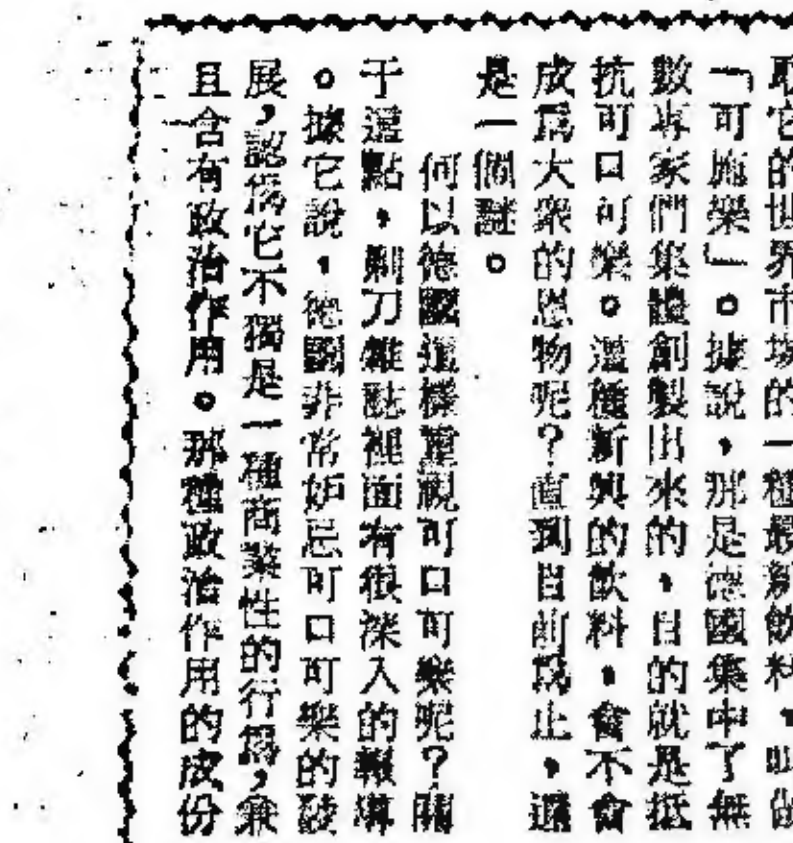 取它的世界市場的一種最新飲料,叫做
「可施樂」。據說,那是德國集中了無
數專家們集體創製出來的,目的就是抵
抗可口可樂。這種新興的飲料,會不會
成爲大衆的恩物呢?直到目前爲止,還
是一個謎。
何以德國這樣重視可口可樂呢?關
于這點,剃刀雜誌裡面有很深入的報導
。據它說,德國非常妒忌可口可樂的發
展,認爲它不獨是一種商業性的行爲,兼
且含有政治作用。那種政治作用的成份